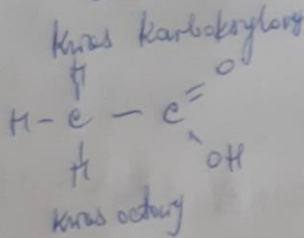 Kwas karboksylowy
H
O
H - C - C
OH
H
kwas octowy